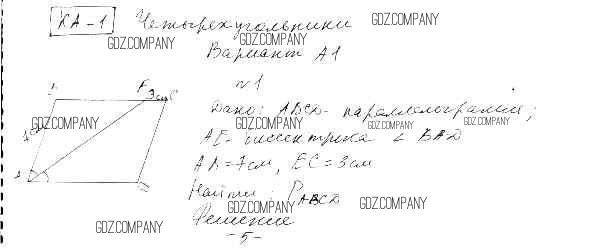 КА-1 Четырехугольники
GDZ.COMPANY
GDZ.COMPANY
GDZ.COMPANY
Вариант А1
№1
E
3см C
Дано: ABCD - параллелограмм;
GDZ.COMPANY
GDZ.COMPANY
GDZ.COMPANY
GDZ.COMPANY
AE - биссектриса ∠ BAD
AB = 7см, EC = 3см
Найти: P ABCD
GDZ.COMPANY
GDZ.COMPANY
GDZ.COMPANY
Решение
-5-